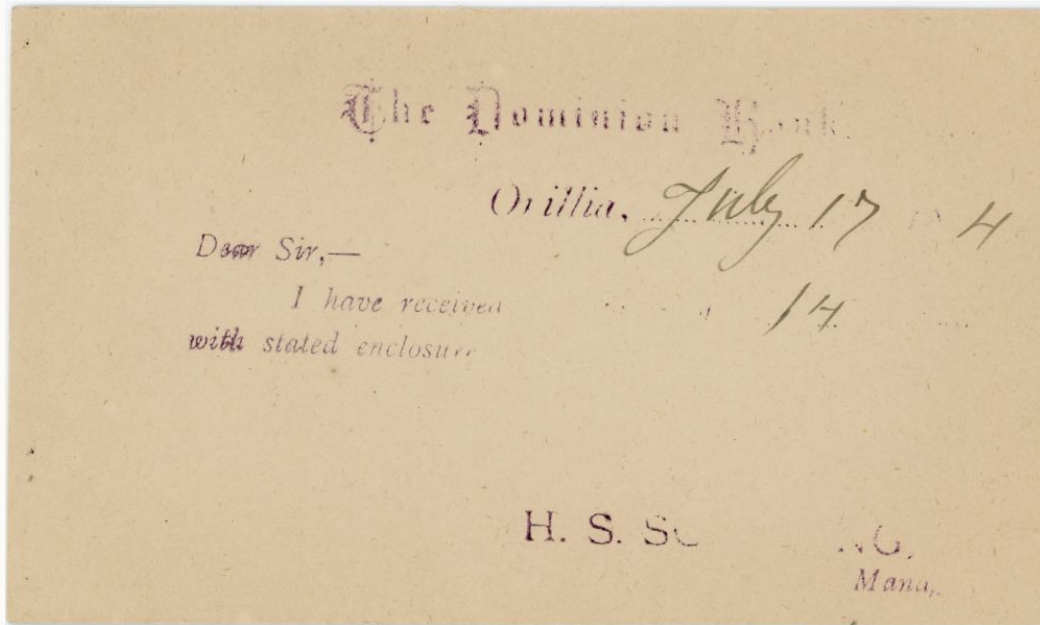 The Dominion Bank.
Orillia, July 17 4
Dear Sir,—
I have received 14
with stated enclosure
H. S.